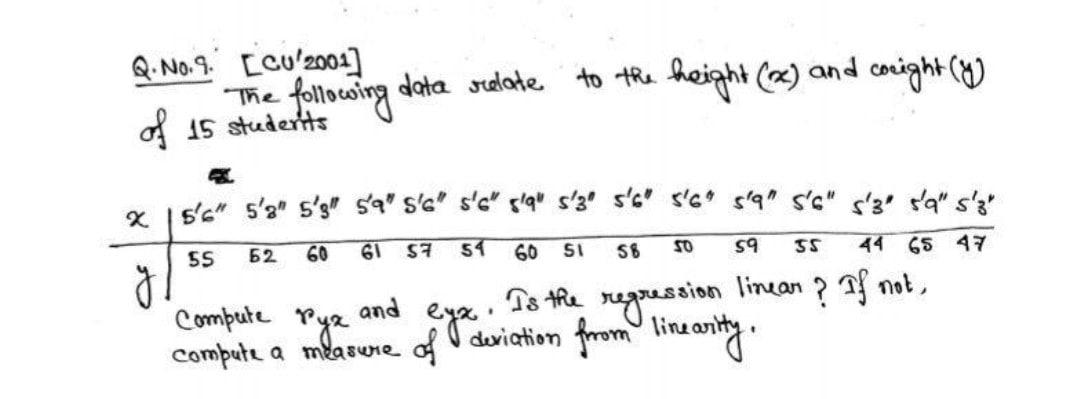 Q.No.9. [CU'2001]
The following data relate to the height (x) and weight (y)
of 15 students
x 5'6" 5'3" 5'9" 5'9" 5'6" 5'6" 5'9" 5'3" 5'6" 5'6" 5'9" 5'6" 5'3" 5'9" 5'3"
y 55 52 60 61 57 54 60 51 58 50 59 55 44 65 47
Compute r_yx and e_yx. Is the regression linear? If not,
compute a measure of deviation from linearity.